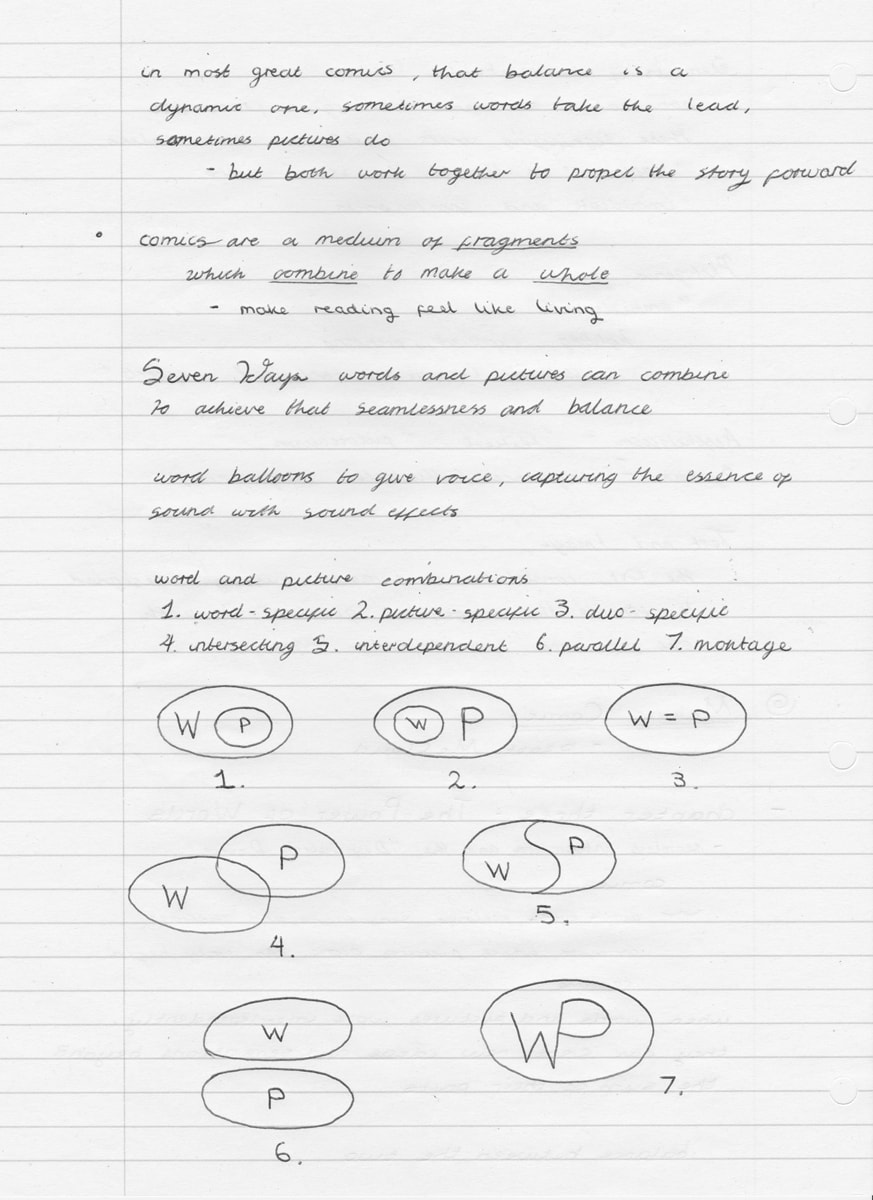 in most great comics, that balance is a
dynamic one, sometimes words take the lead,
sometimes pictures do
- but both work together to propel the story forward
• comics are a medium of fragments
which combine to make a whole
- make reading feel like living
Seven Ways words and pictures can combine
to achieve that seamlessness and balance
word balloons to give voice, capturing the essence of
sound with sound effects
word and picture combinations
1. word-specific 2. picture-specific 3. duo-specific
4. intersecting 5. interdependent 6. parallel 7. montage
W P W P W = P
1. 2. 3.
W P W P
4. 5.
W
P
6.
WP
7.